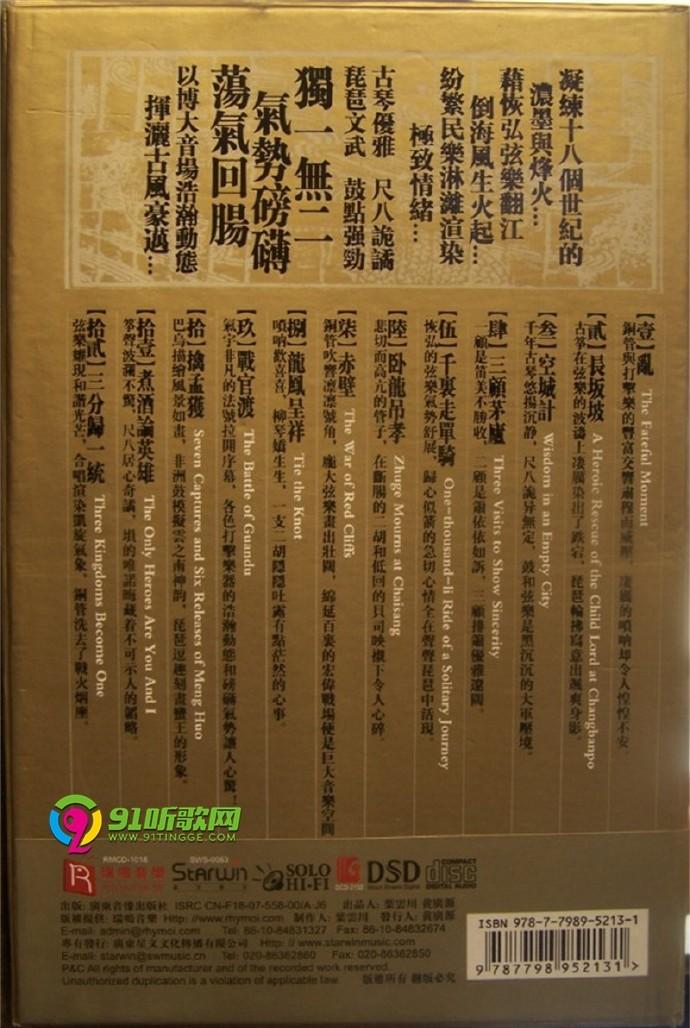 凝練十八個世紀的
濃墨與烽火…
藉恢弘弦樂翻江
倒海風生火起…
紛繁民樂淋灕渲染
極致情緒…
古琴優雅 尺八詭譎
琵琶文武 鼓點强勁
獨一無二
氣勢磅礴
蕩氣回腸
以博大音場浩瀚動態
揮灑古風豪邁…
【壹】亂 The Fateful Moment
銅管與打擊樂的豐富交響肅穆而威壓，淒厲的嗩吶却令人惶惶不安。
【貳】長坂坡 A Heroic Rescue of the Child Lord at Changbanpo
古筝在弦樂的波濤上凄厲染出了跌宕，琵琶輪拂寫意出颯爽身影。
【叁】空城計 Wisdom in an Empty City
千年古琴悠揚沉静，尺八詭异無定，鼓和弦樂是黑沉沉的大軍壓境。
【肆】三顧茅廬 Three Visits to Show Sincerity
一顧是笛美不勝收，二顧是簫依依如訴，三顧排簫優雅遼闊。
【伍】千裏走單騎 One-thousand-li Ride of a Solitary Journey
恢弘的弦樂氣勢舒展，歸心似箭的急切心情全在聲聲琵琶中活現。
【陸】卧龍吊孝 Zhuge Mourns at Chaisang
悲切而高亢的管子，在斷腸的二胡和低回的貝司映襯下令人心碎。
【柒】赤壁 The War of Red Cliffs
銅管吹響凛凛號角，龐大弦樂畫出壯闊，綿延百裏的宏偉戰場便是巨大音樂空間
【捌】龍鳳呈祥 Tie the Knot
嗩吶歡喜喜，柳琴嬌生生，一支二胡隱隱吐露有點茫然的心事。
【玖】戰官渡 The Battle of Guandu
氣宇非凡的法號拉開序幕，各色打擊樂器的浩瀚動態和磅礴氣勢讓人心驚！
【拾】擒孟獲 Seven Captures and Six Releases of Meng Huo
巴烏描繪風景如畫，非洲鼓模擬雲之南神韵，琵琶逗趣刻畫蠻王的形象。
【拾壹】煮酒論英雄 The Only Heroes Are You And I
筝聲波瀾不驚，尺八居心奇譎，塤的唯諾晦藏着不可示人的韜略。
【拾貳】三分歸一統 Three Kingdoms Become One
弦樂雛現和諧光芒，合唱渲染凱旋氣象，銅管洗去了戰火烟塵。
91听歌网
WWW.91TINGGE.COM
RMCD-1016
瑞鳴音樂
SWS-0063
Starwn
SOLO
HI-FI
DSD
Direct Stream Digital
COMPACT
disc
DIGITAL AUDIO
出版: 廣東音像出版社 ISRC CN-F18-07-558-00/A·J6 出品人: 葉雲川 黄廣源
版權提供: 瑞鳴音樂 Http://www.rhymoi.com 制作人: 葉雲川 發行人: 黄廣源
E-mail: admin@rhymoi.com Tel: 86-10-84831327 Fax: 86-10-84832674
專有發行: 廣東星文文化傳播有限公司 Http: // www.starwinmusic.com
E-mail: starwin@swmusic.cn Tel: 020-86362860 Fax: 020-86362850
P&C All rights of manufacturer and of the recorded work reserved.
Unauthorized duplication is a violation of applicable law. 版權所有 翻版必究
ISBN 978-7-7989-5213-1
9 787798 952131 >